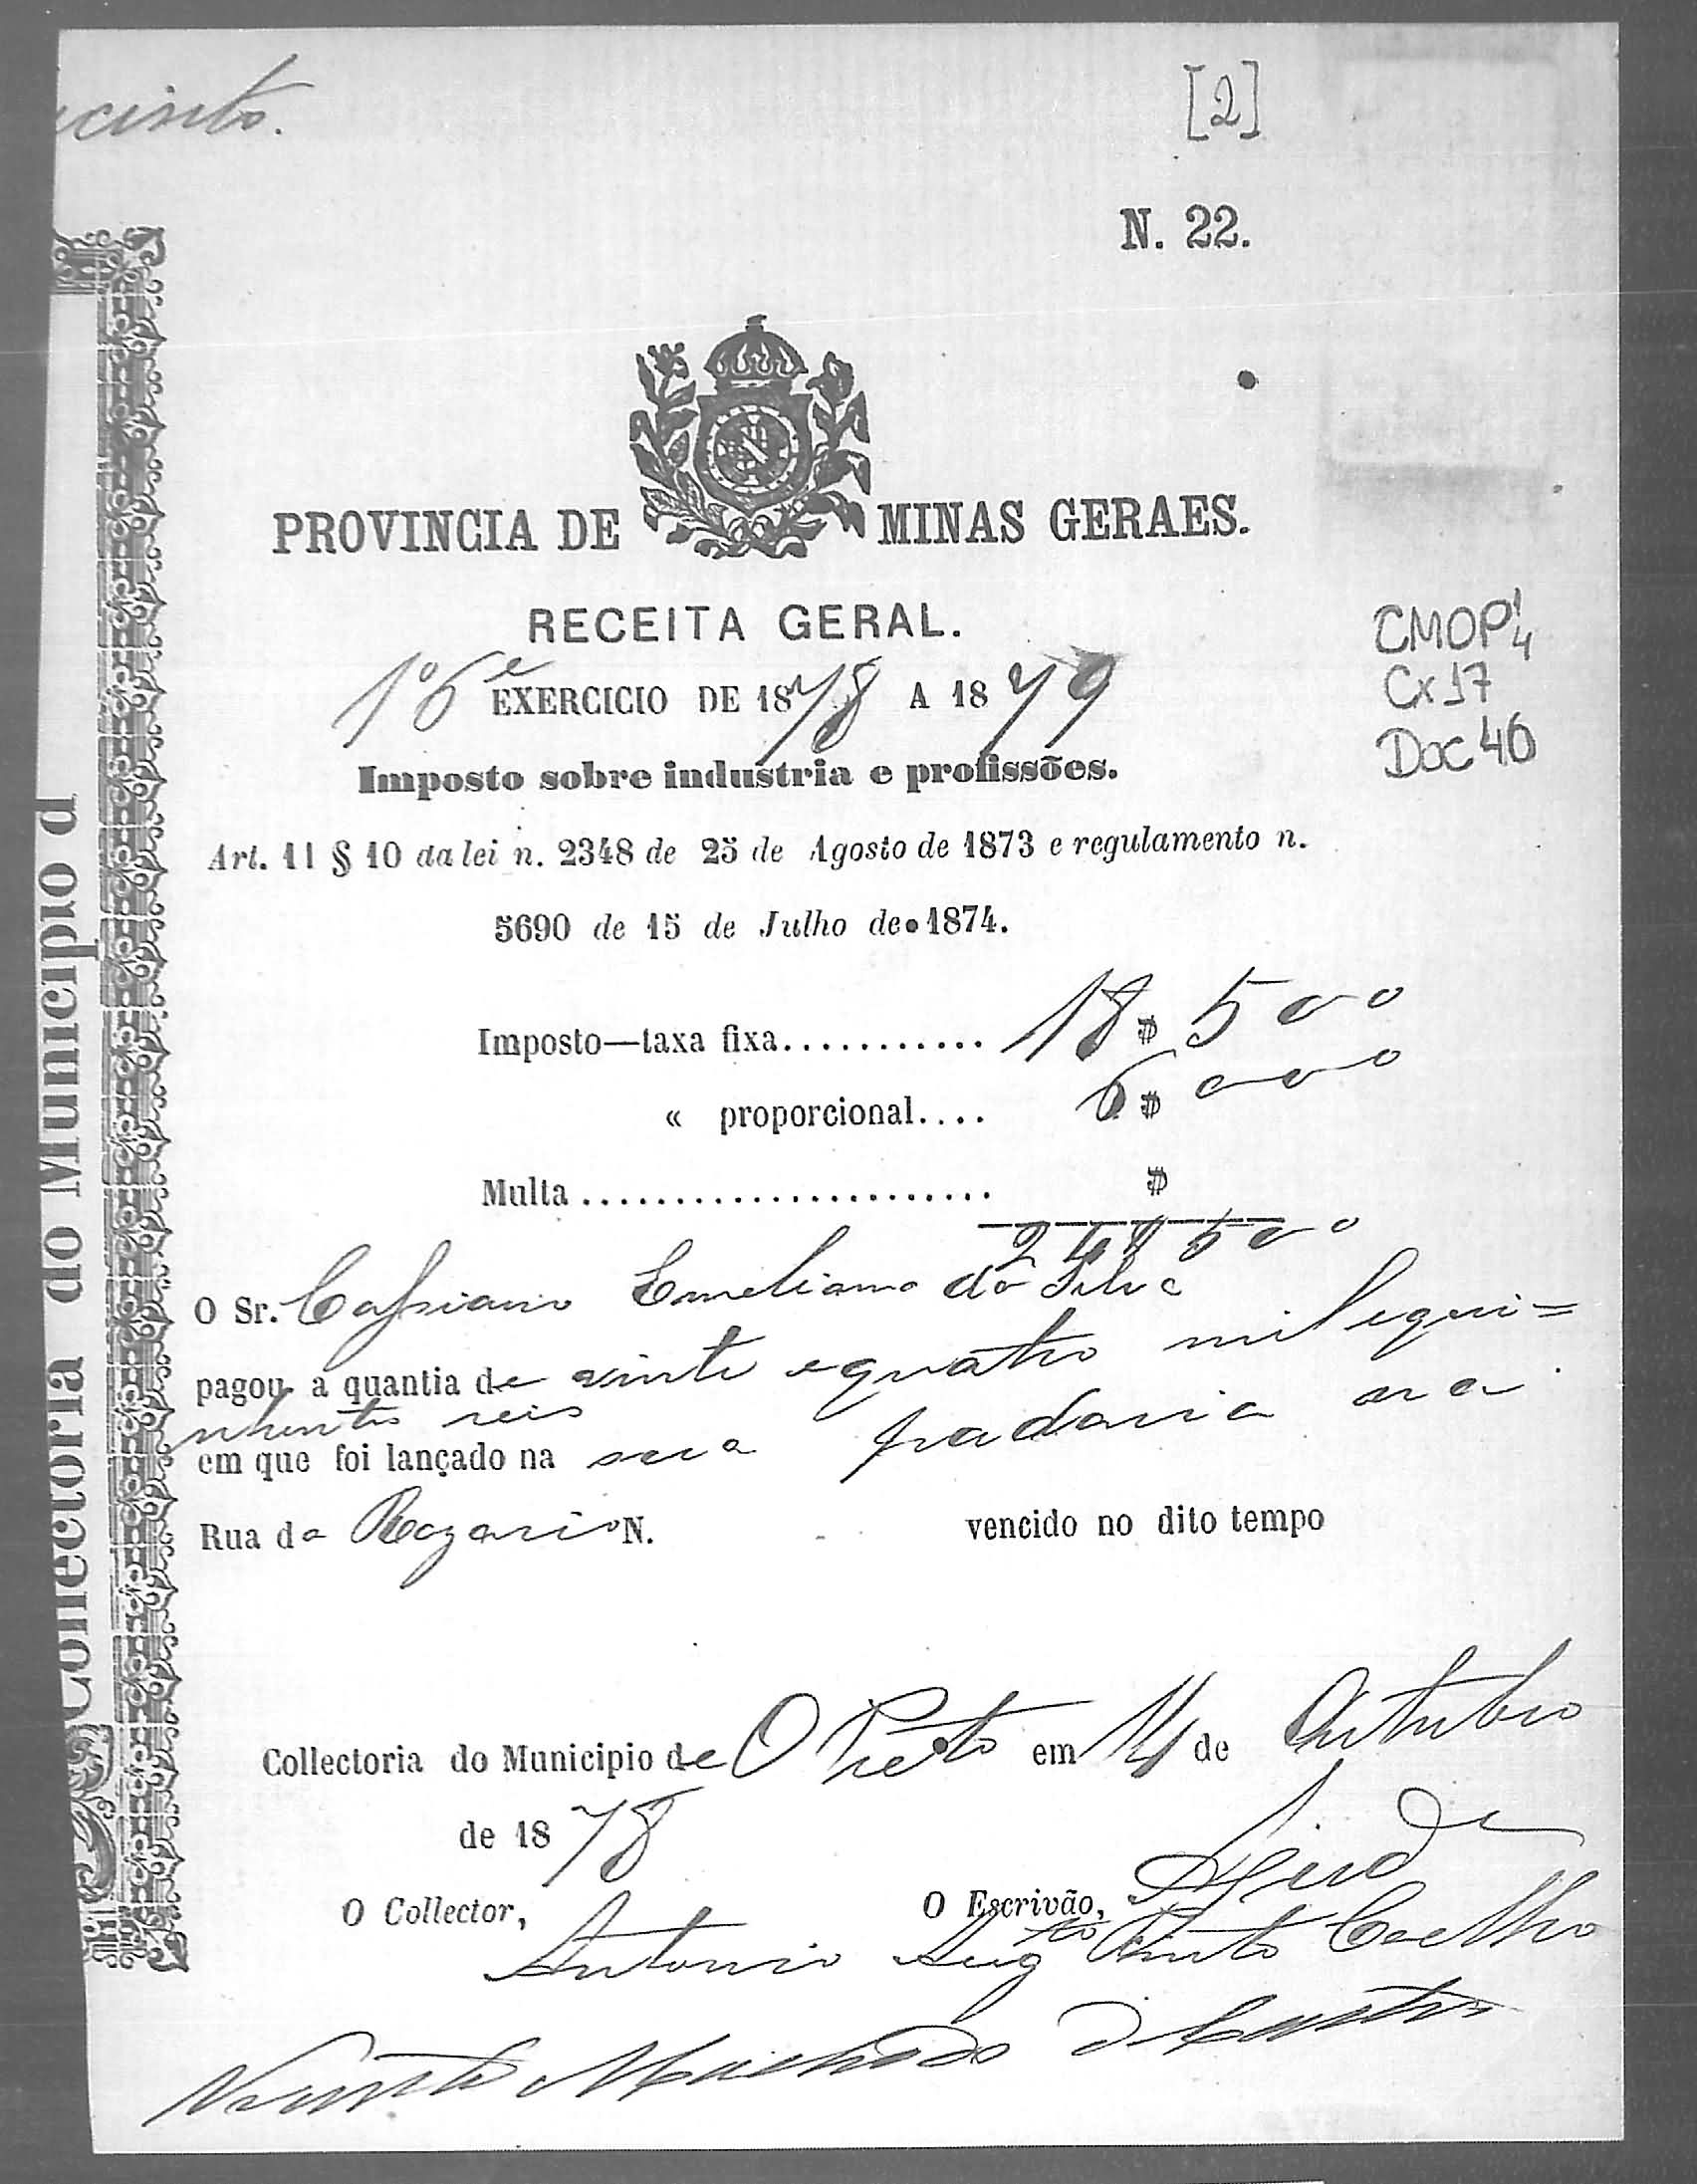 cinto.
[2]
N. 22.
PROVINCIA DE MINAS GERAES.
RECEITA GERAL.
CMOP 1/4
Cx 17
Doc 46
1º 6e EXERCICIO DE 1878 A 1879
Imposto sobre industria e profissões.
Art. 11 § 10 da lei n. 2348 de 25 de Agosto de 1873 e regulamento n.
5690 de 15 de Julho de 1874.
Imposto—taxa fixa........... 18$500
« proporcional.... 6$000
Multa...................... $
24$500
O Sr. Cassiano Emeliano da Silva
pagou a quantia de vinte e quatro mil e qui=
nhentos reis
em que foi lançado na sua padaria na
Rua do Rozario N. vencido no dito tempo
Collectoria do Municipio de O Preto em 14 de Outubro
de 1878
O Collector,
O Escrivão, Ajud de
Antonio Augto Pinto Coelho
Vicente Machado de Castro
Collectoria do Municipio d